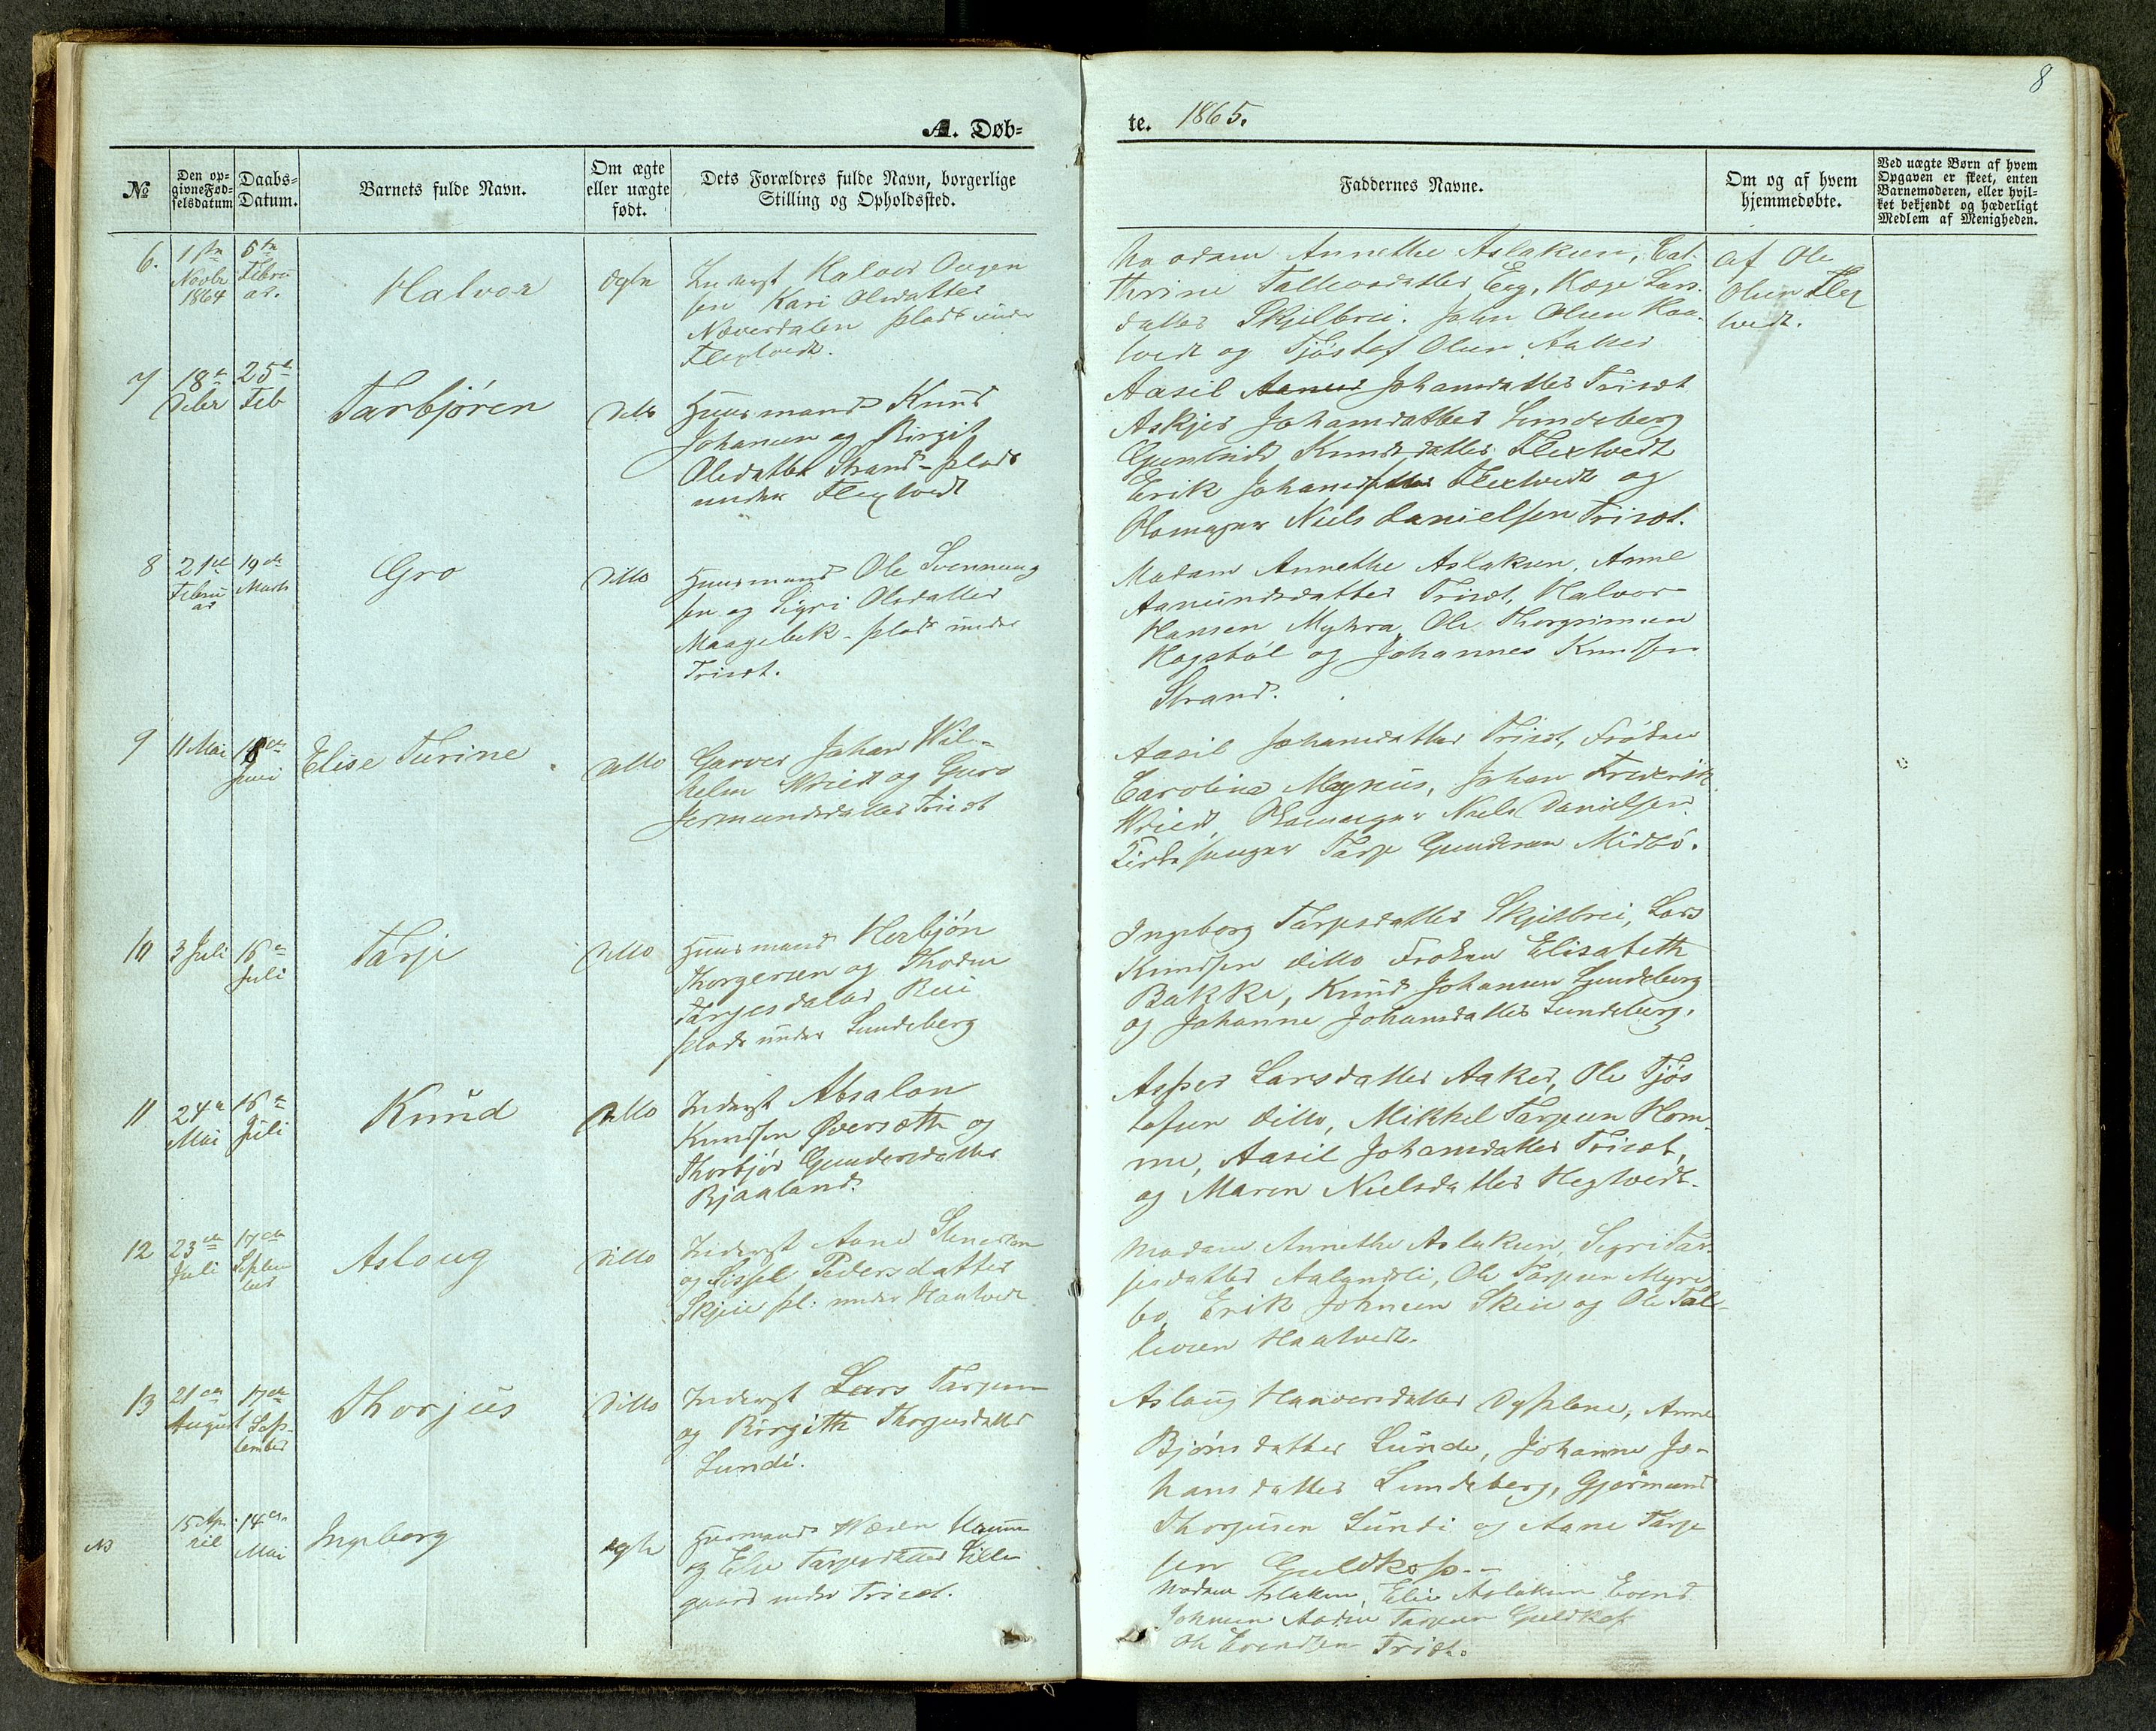 8
A. Døb=
te. 1865.
No
Den op=
givne Fød=
selsdatum
Daabs=
Datum.
Barnets fulde Navn.
Om ægte
eller uægte
født.
Dets Forældres fulde Navn, borgerlige
Stilling og Opholdssted.
Faddernes Navne.
Om og af hvem
hjemmedøbte.
Ved uægte Børn af hvem
Opgaven er skeet, enten
Barnemoderen, eller hvil=
ket bekjendt og hæderligt
Medlem af Menigheden.
6.
1ste
Novbr
1864
5te
Febru
ar.
Halvor
ægte
Inderst Halvor
sen Kari Olsdatter
Næverdalen plads under
Flextvedt.
Madam Annethe Aslaksen, Cat
thrine Tallevsdatter Eeg, Kæge Lars
datter Skjelbrei. John Olsen Haa
tvedt og Tjøstof Olsen Aaker
af Ole
Olsen Flex
tvedt.
7
18de
Debr
25de
Feb
Tarbjøren
ditto
Huusmand Knud
Johansen og Birgit
Olsdatter Strand - plads
under Flextvedt
Aasil Johansdatter Trisæt
Askjer Johansdatter Lundeberg
Gunhild Knudsdatter Flextvedt
Erik Johans Flextvedt og
Niels Danielsen Trisæt.
8
21de
Febru
ar
19de
Marts
Gro
ditto
Huusmand Ole Svennung
sen og Sigri Olsdatter
Maagebek - plads under
Trisæt.
Madam Annethe Aslaksen, Anne
Aanundsdatter Trisæt, Halvor
Hansen Myhra, Ole Thorgrimsen
Hogstøl og Johannes Knudsen
Strand.
9
11 Mai
18de
Juni
Elise Turine
ditto
Garver Johan Wil=
helm Wriedt og Guro
Jermundsdatter Trisæt
Aasil Johansdatter Trisæt, Frøken
Caroline Magnus, Johan Frederik
Wriedt, Niels Danielsen
Kirkesanger Tarje Gundersen Midbø.
10
3 Juli
16de
Juli
Tarje
ditto
Huusmand Herbjøn
Thorgersen og Thodne
Tarjesdatter Rui
plads under Lundeberg
Ingeborg Tarjesdatter Skjelbrei, Lars
Knudsen ditto Frøken Elisabeth
Bakke, Knud Johansen Lundeberg
og Johanne Johansdatter Lundeberg.
11
24de
Mai
16de
Juli
Knud
ditto
Inderst Absalon
Knudsen Øversæth og
Thorbjør Gundersdatter
Bjaaland.
Asper Larsdatter Aaker, Ole Tjøs
tofsen ditto, Mikkel Tarjesen Hom
me, Aasil Johansdatter Trisæt,
og Maren Nielsdatter Hegtvedt.
12
23de
Juli
17de
Septem
ber
Asloug
ditto
Inderst Aane Stenersen
og Sissel Pedersdatter
Skjeie pl. under Haatvedt
Madam Annethe Aslaksen, Sigri Tar
jesdatter Aalandsli, Ole Tarjesen Myre
bø, Erik Johnsen Skeie og Ole Tal
levsen Haatvedt.
13
21de
August
17de
Sep
tember
Thorjus
ditto
Inderst Lars Tarjesen
og Birgith Thorjusdatter
Lundi.
Aslaug Halvorsdatter Dypleine, Anne
Bjørnsdatter Lunde, Johanne Jo=
hansdatter Lundeberg, Gjermund
Thorjusen Lundi og Aane Tarje
sen Guldkop.-
15 Ap=
ril
14de
Mai
Ingeborg
ægte
Huusmand
og Else Tarjesdatter Lille
gaard under Trisæt.
Madam Aslaksen, Elie Aslaksen Evend
Johnsen Aadne Tarjesen Guldkop
Ole Evendsen Trisæt.